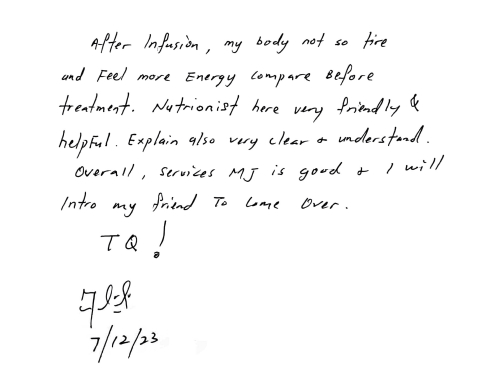 After Infusion, my body not so tire
and Feel more Energy compare Before
treatment. Nutrionist here very friendly &
helpful. Explain also very clear & understand.
Overall, services MJ is good & I will
Intro my friend To come over.
TQ!
7/12/23